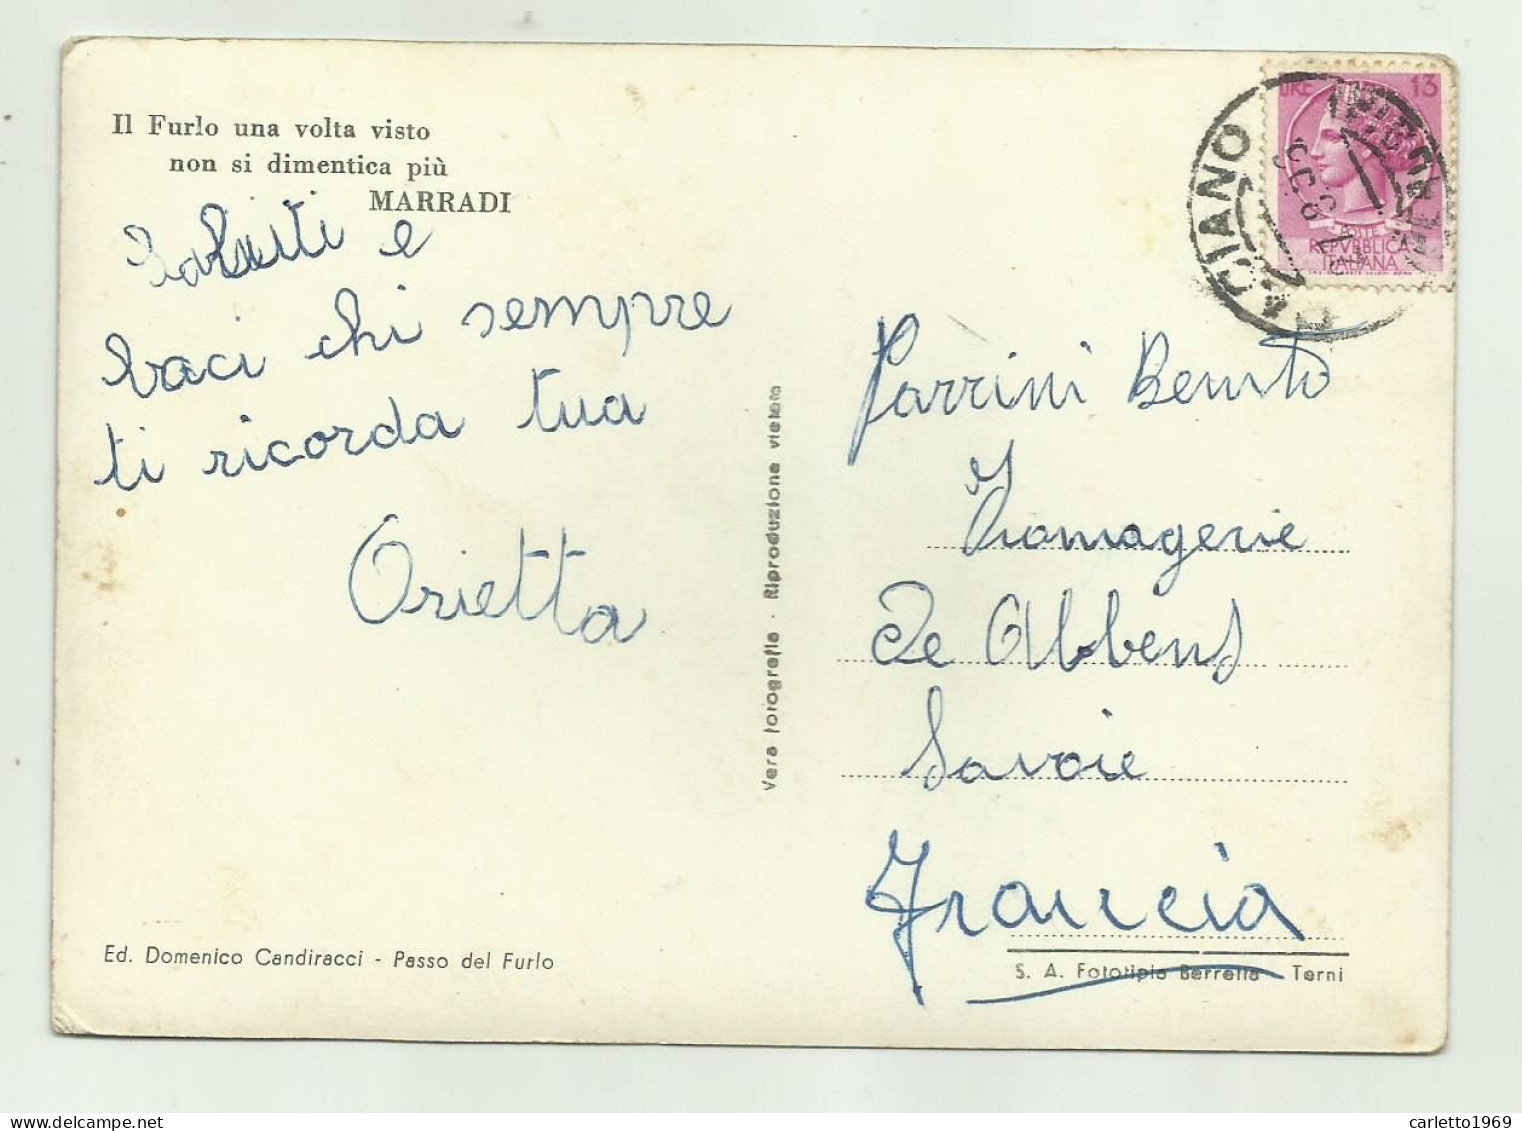 Il Furlo una volta visto
non si dimentica più
MARRADI
Saluti e
baci chi sempre
ti ricorda tua
Orietta
Ed. Domenico Candiracci - Passo del Furlo
Vera fotografia - Riproduzione vietata
LIRE 13
POSTE
REPVBBLICA
ITALIANA
CIANO
Parrini Benito
Fromagerie
De Abbens
Savoie
Francia
S. A. Fototipia Berretta - Terni
carletto1969